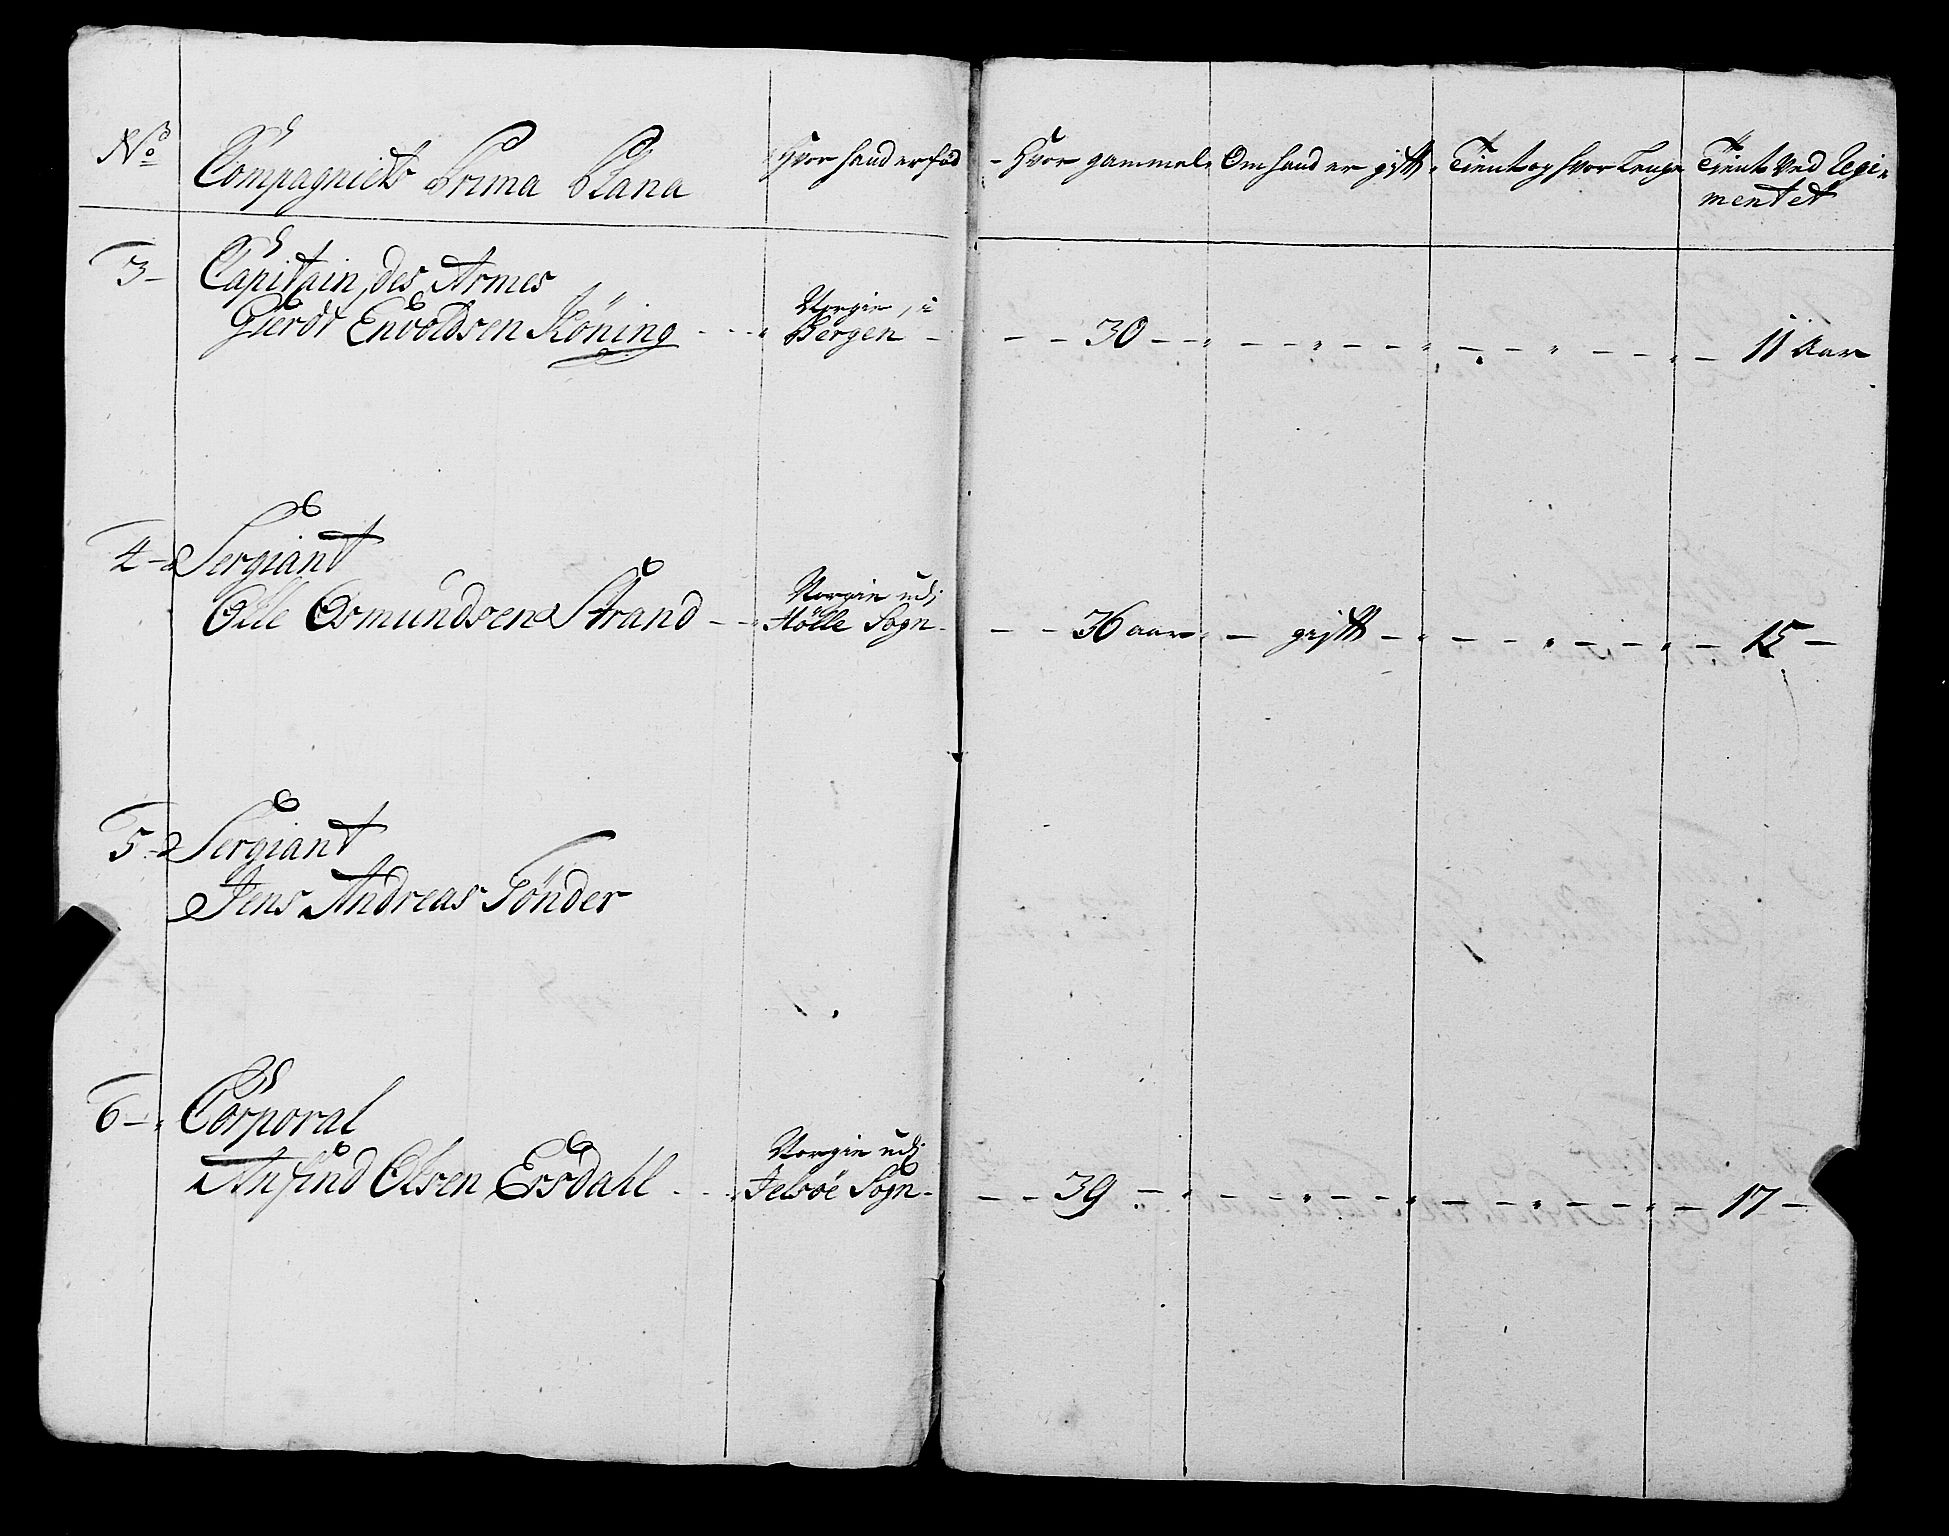 No
Compagniets Prima Plana
Hvor hand er fød
Hvor gammel
Om hand er gift
Tient og hvor Lenge
Tient Ved Regi-
mentet
3
Capitain des Armes
Gierdt Envoldsen Köning
Norgie, i
Bergen
30
11 Aar
4
Sergiant
Olle Osmundsen Strand
Norgie udi
Hölle Sogn
36 aar
gift
15
5
Sergiant
Jens Andreas Tönder
6
Corporal
Anfind Olsen Ersdall
Norgie udi
Jelsöe Sogn
39
17